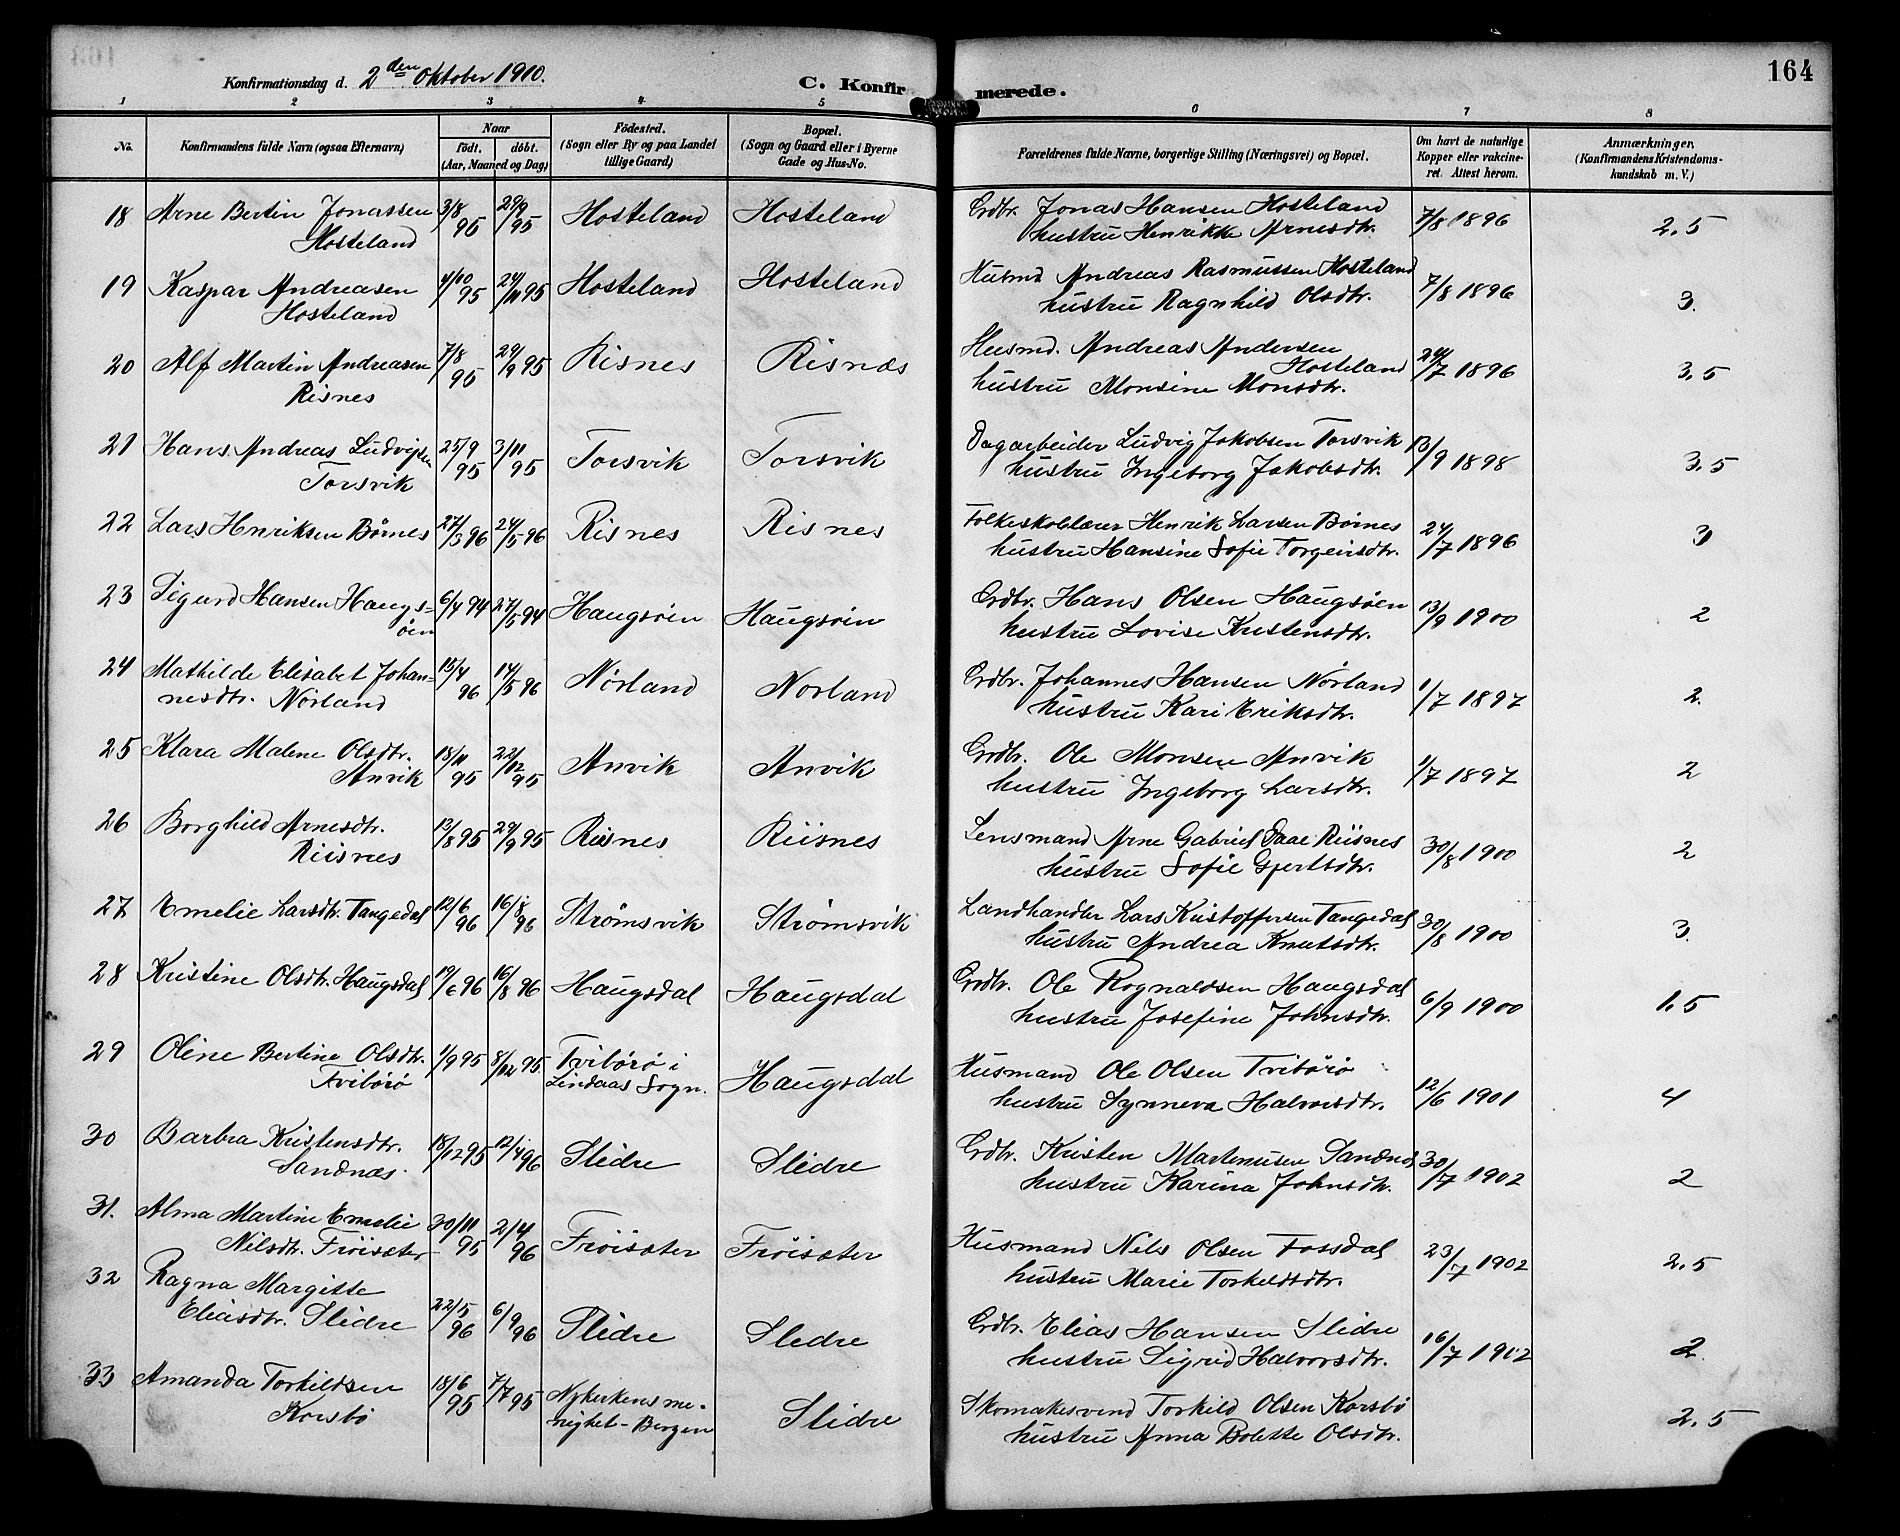 164
Konfirmationsdag d. 2den Oktober 1910.
C. Konfirmerede.
1 2 3 4 5 6 7 8
No.
Konfirmandens fulde Navn (ogsaa Efternavn)
Naar
födt. döbt.
(Aar, Maaned og Dag)
Födested.
(Sogn eller By og paa Landet
tillige Gaard)
Bopæl.
(Sogn og Gaard eller i Byerne
Gade og Hus-No.
Forældrenes fulde Navne, borgerlige Stilling (Næringsvei) og Bopæl.
Om havt de naturlige
Kopper eller vakcine-
ret. Attest herom.
Anmærkninger.
(Konfirmandens Kristendoms-
kundskab m. V.)
18 Arne Bertin Jonassen 3/8 95 29/9 95 Hosteland Hosteland Grdbr. Jonas Hansen Hosteland 7/8 1896 2,5
Hosteland hustru Henrikke Arnesdtr.
19 Kaspar Andreasen 4/10 95 24/11 95 Hosteland Hosteland Husmd. Andreas Rasmussen Hosteland 7/8 1896 3.
Hosteland hustru Ragnhild Olsdtr.
20 Alf Martin Andreasen 7/8 95 29/9 95 Risnes Risnæs Husmd. Andreas Andersen 24/7 1896 3,5
Risnes Hosteland
hustru Monsine Monsdtr.
21 Hans Andreas Ludvigsen 25/9 95 3/11 95 Torsvik Torsvik Dagarbeider Ludvig Jakobsen Torsvik 13/9 1898 3,5
Torsvik hustru Ingeborg Jakobsdtr.
22 Lars Henriksen Børnes 27/3 96 24/5 96 Risnes Risnes Folkeskolelærer Henrik Larsen Børnes 24/7 1896 3
hustru Hansine Sofie Torgeirsdtr.
23 Sigurd Hansen Haugs- 6/4 94 27/5 94 Haugsöen Haugsöen Grdbr. Hans Olsen Haugsöen 13/9 1900 2
öen hustru Lovise Kristensdtr.
24 Mathilde Elisabet Johan- 15/4 96 14/5 96 Nörland Norland Grdbr. Johannes Hansen Nörland 1/7 1897 2.
nesdtr. Nörland hustru Kari Eriksdtr.
25 Klara Malene Olsdtr. 18/11 95 22/12 95 Anvik Anvik Grdbr. Ole Monsen Anvik 1/7 1897 2
Anvik hustru Ingeborg Larsdtr.
26 Borghild Arnesdtr. 13/8 95 29/9 95 Risnes Riisnes Lensmand Arne Gabriel Daae Riisnes 30/8 1900 2
Riisnes hustru Sofie Gjertsdtr.
27 Emelie Larsdtr. Tangedal 12/6 96 16/8 96 Strømsvik Strømsvik Landhandler Lars Kristoffersen Tangedal 30/8 1900 3.
hustru Andrea Knutsdtr.
28 Kristine Olsdtr. Haugsdal 19/6 96 16/8 96 Haugsdal Haugsdal Grdbr. Ole Rognaldsen Haugsdal 6/9 1900 1,5
hustru Josefine Johnsdtr.
29 Oline Bertine Olsdtr. 1/9 95 8/12 95 Tvibörö i Haugsdal Husmand Ole Olsen Tvibörö 12/6 1901 4
Tvibörö Lindaas Sogn. hustru Synneva Halvorsdtr.
30 Barbra Kristensdtr. 18/12 95 12/4 96 Slidre Slidre Grdbr. Kristen Martinusen Sandnes 30/7 1902 2
Sandnæs. hustru Karina Johnsdtr.
31. Alma Martine Emelie 30/11 95 2/4 96 Fröisæter Fröisæter Husmand Nils Olsen Fossdal 23/7 1902 2,5
Nilsdtr. Fröisæter hustru Marie Torkeldsdtr.
32 Ragna Margitte 22/5 96 6/9 96 Slidre Sledre Grdbr. Elias Hansen Slidre 16/7 1902 2
Eliasdtr. Slidre hustru Sigrid Halvorsdtr.
33 Amanda Torkildsen 18/6 95 7/7 95 Nykirkens me- Slidre Skomakersvend Torkild Olsen Korsbö 2,5
Korsbö nighet - Bergen hustru Anna Bolette Olsdtr.